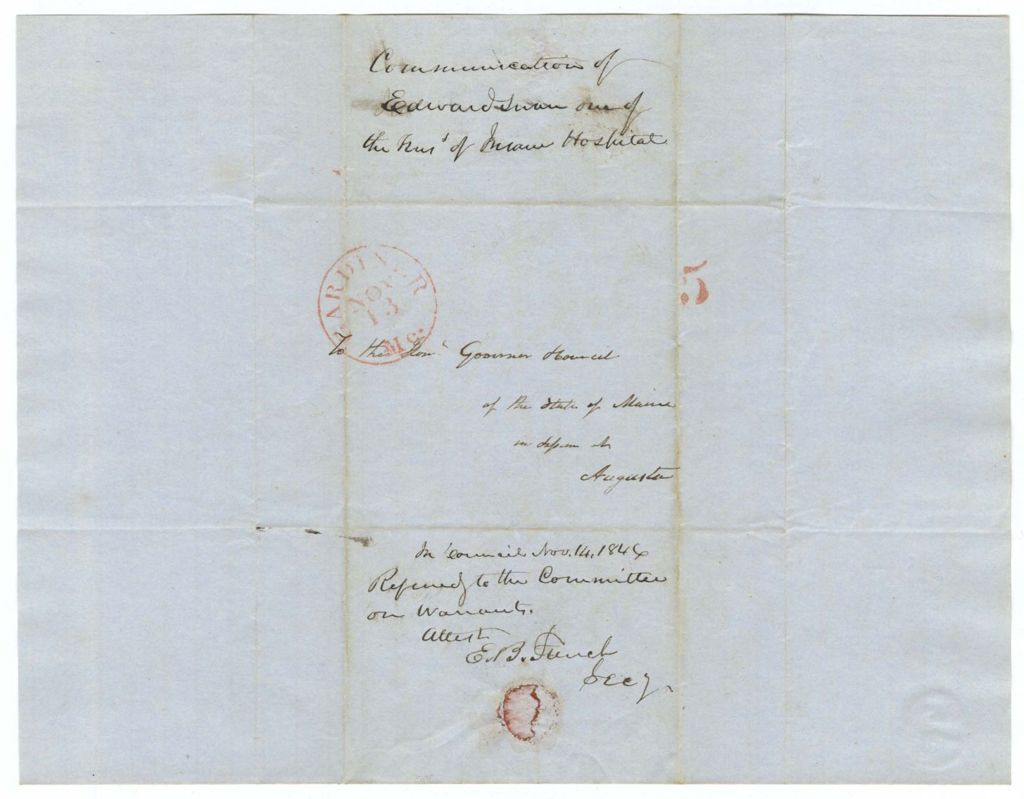 Communication of
Edward Swan one of
the Trus^s of Insane Hospital
GARDINER
NOV
13
Me.
5
To the Hon^l Governor & Council
of the State of Maine
in Session at
Augusta
In Council Nov. 14, 1846
Referred to the Committee
on Warrants.
Attest
E. B. French
Secy.